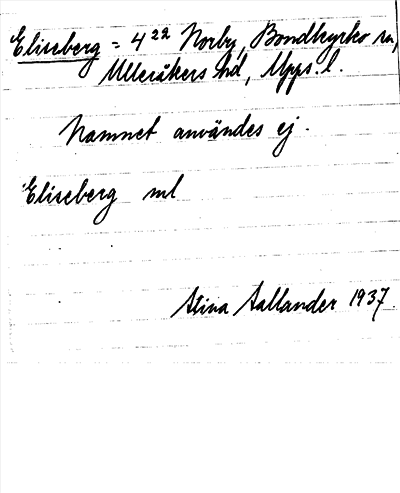 Eliseberg = 4²² Norby, Bondkyrko sn,
Ulleråkers hd, Upps. l.
Namnet användes ej.
Eliseberg ml
Stina Aallander 1937.